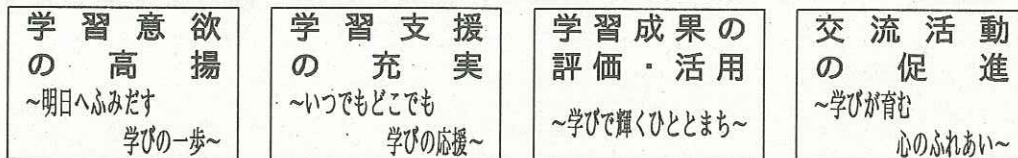 学習意欲
の高揚
~明日へふみだす
学びの一歩~
学習支援
の充実
~いつでもどこでも
学びの応援~
学習成果の
評価・活用
~学びで輝くひととまち~
交流活動
の促進
~学びが育む
心のふれあい~